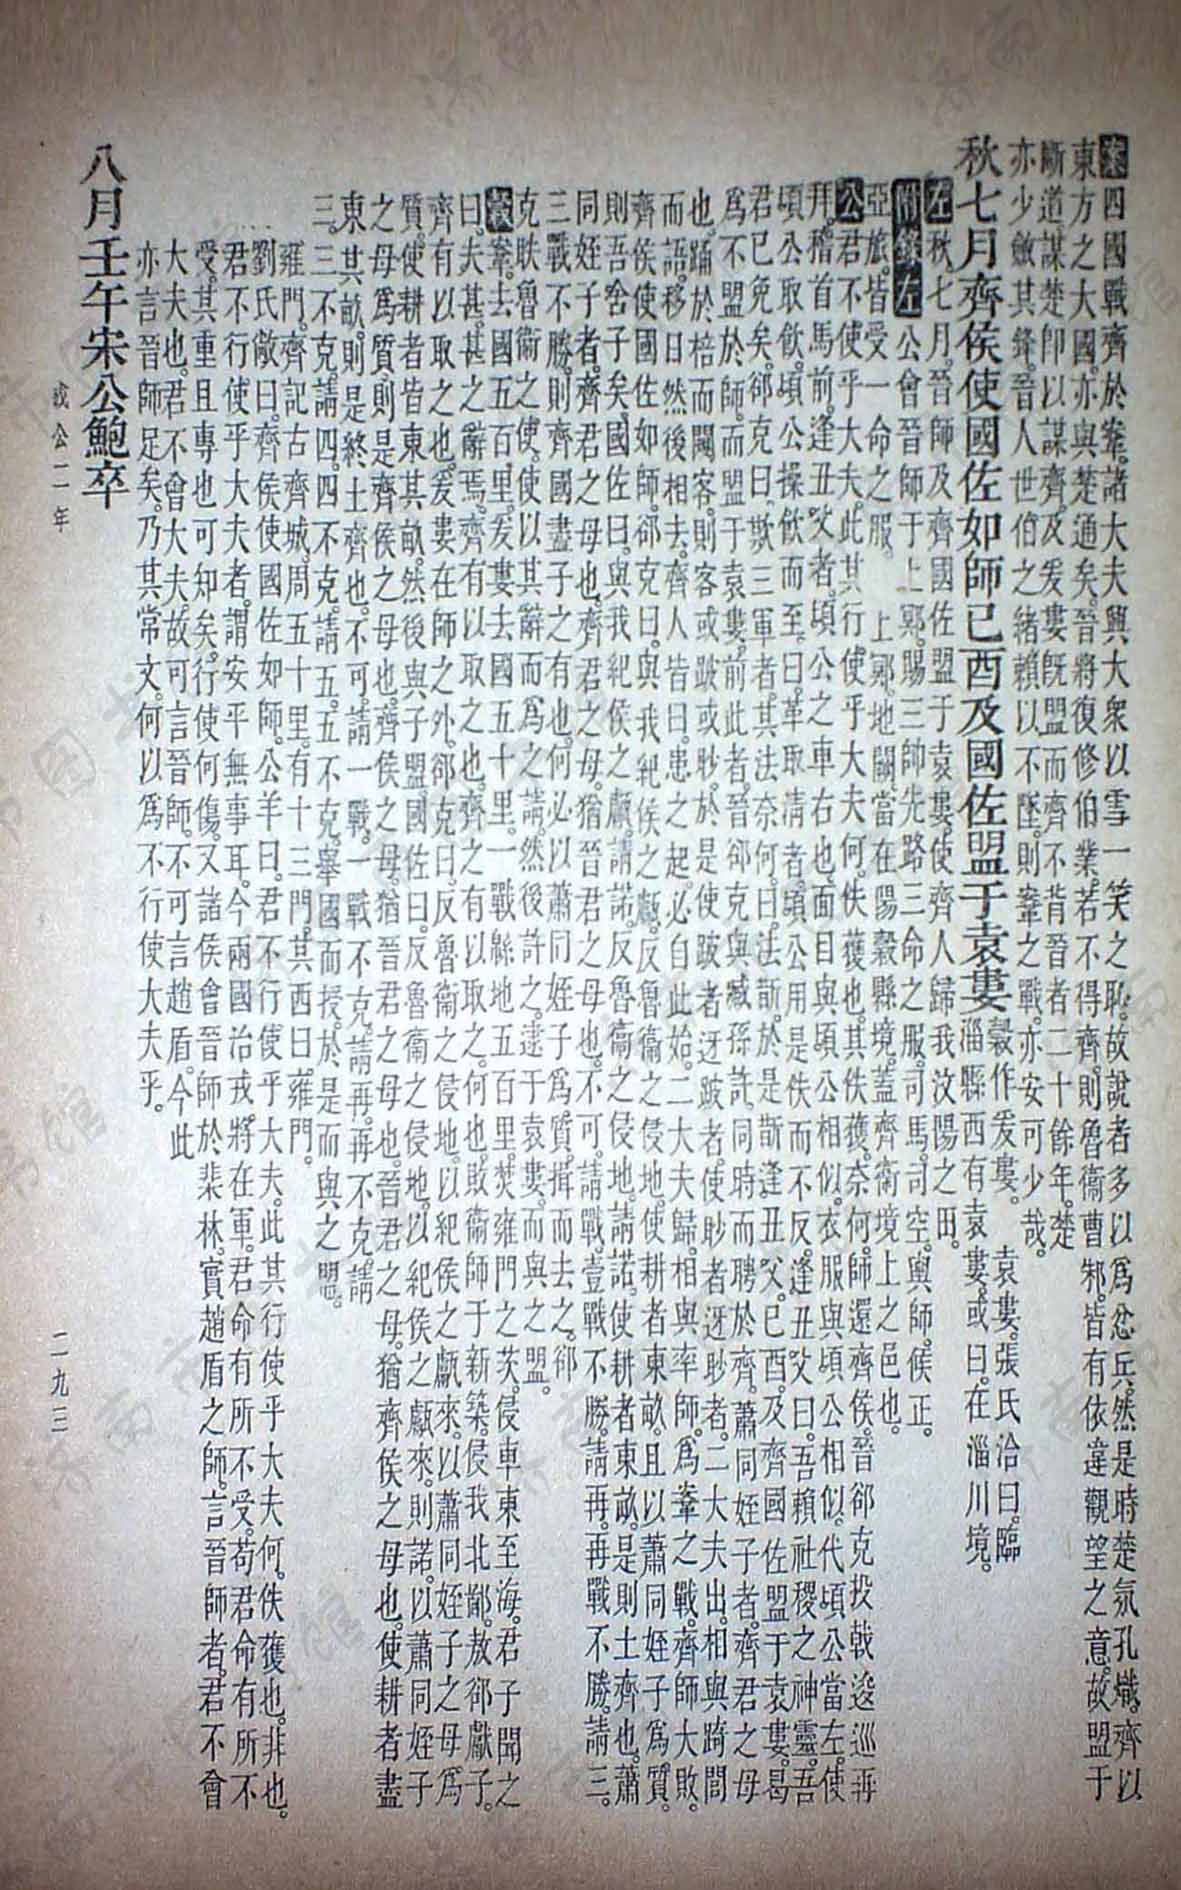 案四國戰齊於鞌。諸大夫興大衆以雪一笑之恥。故說者多以爲忿兵。然是時楚氛孔熾。齊以
東方之大國。亦與楚通矣。晉將復修伯業。若不得齊。則魯衞曹邾。皆有依違觀望之意。故盟于
斷道。謀楚卽以謀齊。及爰婁旣盟。而齊不背晉者二十餘年。楚
亦少斂其鋒。晉人世伯之緒。賴以不墜。則鞌之戰。亦安可少哉。
秋七月齊侯使國佐如師已酉及國佐盟于袁婁 穀作爰婁。 袁婁。張氏洽曰。臨
淄縣西有袁婁。或曰。在淄川境。
左秋。七月。晉師及齊國佐盟于袁婁。使齊人歸我汶陽之田。
附錄左公會晉師于上鄍。賜三帥先路三命之服。司馬。司空。輿師。侯正。
亞旅。皆受一命之服。 上鄍。地闕。當在陽穀縣境。蓋齊衞境上之邑也。
公君不使乎大夫。此其行使乎大夫何。佚獲也。其佚獲奈何。師還齊侯。晉郤克投戟逡巡再
拜。稽首馬前。逢丑父者。頃公之車右也。面目與頃公相似。衣服與頃公相似。代頃公當左。使
頃公取飲。頃公操飲而至。曰。革取清者。頃公用是佚而不反。逢丑父曰。吾賴社稷之神靈。吾
君已免矣。郤克曰。欺三軍者。其法奈何。曰。法斮。於是斮逢丑父。已酉。及齊國佐盟于袁婁。曷
爲不盟於師。而盟于袁婁。前此者。晉郤克與臧孫許。同時而聘於齊。蕭同姪子者。齊君之母
也。踊於棓而闚客。則客或跛或眇。於是使跛者迓跛者。使眇者迓眇者。二大夫出。相與踦閭
而語。移日然後相去。齊人皆曰。患之起。必自此始。二大夫歸。相與率師。爲鞌之戰。齊師大敗。
齊侯使國佐如師。郤克曰。與我紀侯之甗。反魯衞之侵地。使耕者東畝。且以蕭同姪子爲質。
則吾舍子矣。國佐曰。與我紀侯之甗。請諾。反魯衞之侵地。請諾。使耕者東畝。是則土齊也。蕭
同姪子者。齊君之母也。齊君之母。猶晉君之母也。不可。請戰。壹戰不勝。請再。再戰不勝。請三。
三戰不勝。則齊國盡子之有也。何必以蕭同姪子爲質。揖而去之。郤
克眣魯衞之使。使以其辭而爲之請。然後許之。逮于袁婁。而與之盟。
穀鞌。去國五百里。爰婁。去國五十里。一戰緜地五百里。焚雍門之茨。侵車東至海。君子聞之
曰。夫甚。甚之辭焉。齊有以取之也。齊之有以取之。何也。敗衞師于新築。侵我北鄙。敖郤獻子。
齊有以取之也。爰婁在師之外。郤克曰。反魯衞之侵地。以紀侯之甗來。以蕭同姪子之母爲
質。使耕者皆東其畝。然後與子盟。國佐曰。反魯衞之侵地。以紀侯之甗來。則諾。以蕭同姪子
之母爲質。則是齊侯之母也。齊侯之母。猶晉君之母也。晉君之母。猶齊侯之母也。使耕者盡
東其畝。則是終土齊也。不可。請一戰。一戰不克。請再。再不克。請
三。三不克。請四。四不克。請五。五不克。舉國而授。於是而與之盟。
雍門。齊記古齊城。周五十里。有十三門。其西曰。雍門。
劉氏敞曰。齊侯使國佐如師。公羊曰。君不行使乎大夫。此其行使乎大夫何。佚獲也。非也。
君不行使乎大夫者。謂安平無事耳。今兩國治戎。將在軍。君命有所不受。苟君命有所不
受。其重且專也可知矣。行使何傷。又諸侯會晉師於棐林。實趙盾之師。言晉師者。君不會
大夫也。君不會大夫。故可言晉師。不可言趙盾。今此
亦言晉師足矣。乃其常文。何以爲不行使大夫乎。
八月壬午宋公鮑卒
成公二年
二九三